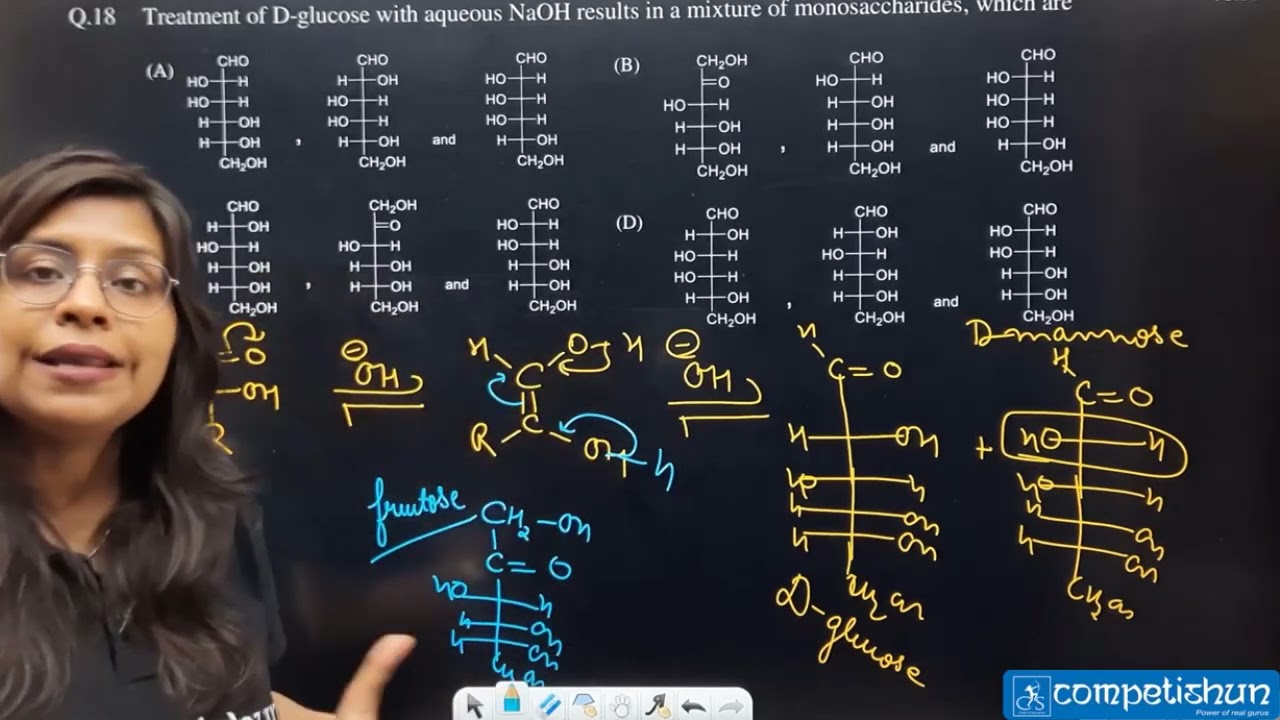 Q.18 Treatment of D-glucose with aqueous NaOH results in a mixture of monosaccharides, which are
(A)
CHO
HO H
HO H
H OH
H OH
CH₂OH
,
CHO
H OH
HO H
HO H
H OH
CH₂OH
and
CHO
HO H
HO H
HO H
H OH
CH₂OH
(B)
CH₂OH
=O
HO H
H OH
H OH
CH₂OH
,
CHO
HO H
H OH
H OH
H OH
CH₂OH
and
CHO
HO H
HO H
HO H
H OH
CH₂OH
CHO
H OH
HO H
H OH
H OH
CH₂OH
,
CH₂OH
=O
HO H
H OH
H OH
CH₂OH
and
CHO
HO H
HO H
H OH
H OH
CH₂OH
(D)
CHO
H OH
HO H
HO H
H OH
CH₂OH
,
CHO
H OH
HO H
H OH
H OH
CH₂OH
and
CHO
HO H
HO H
H OH
H OH
CH₂OH
=O
-OH
R
⊖
OH
H O-H
C
C
R OH H
⊖
OH
H
C=O
H OH
HO H
H OH
H OH
CH₂OH
D-glucose
+
D-mannose
H
C=O
HO H
HO H
H OH
H OH
CH₂OH
fructose
CH₂-OH
C=O
HO H
H OH
H OH
CH₂OH
competishun
Power of real gurus